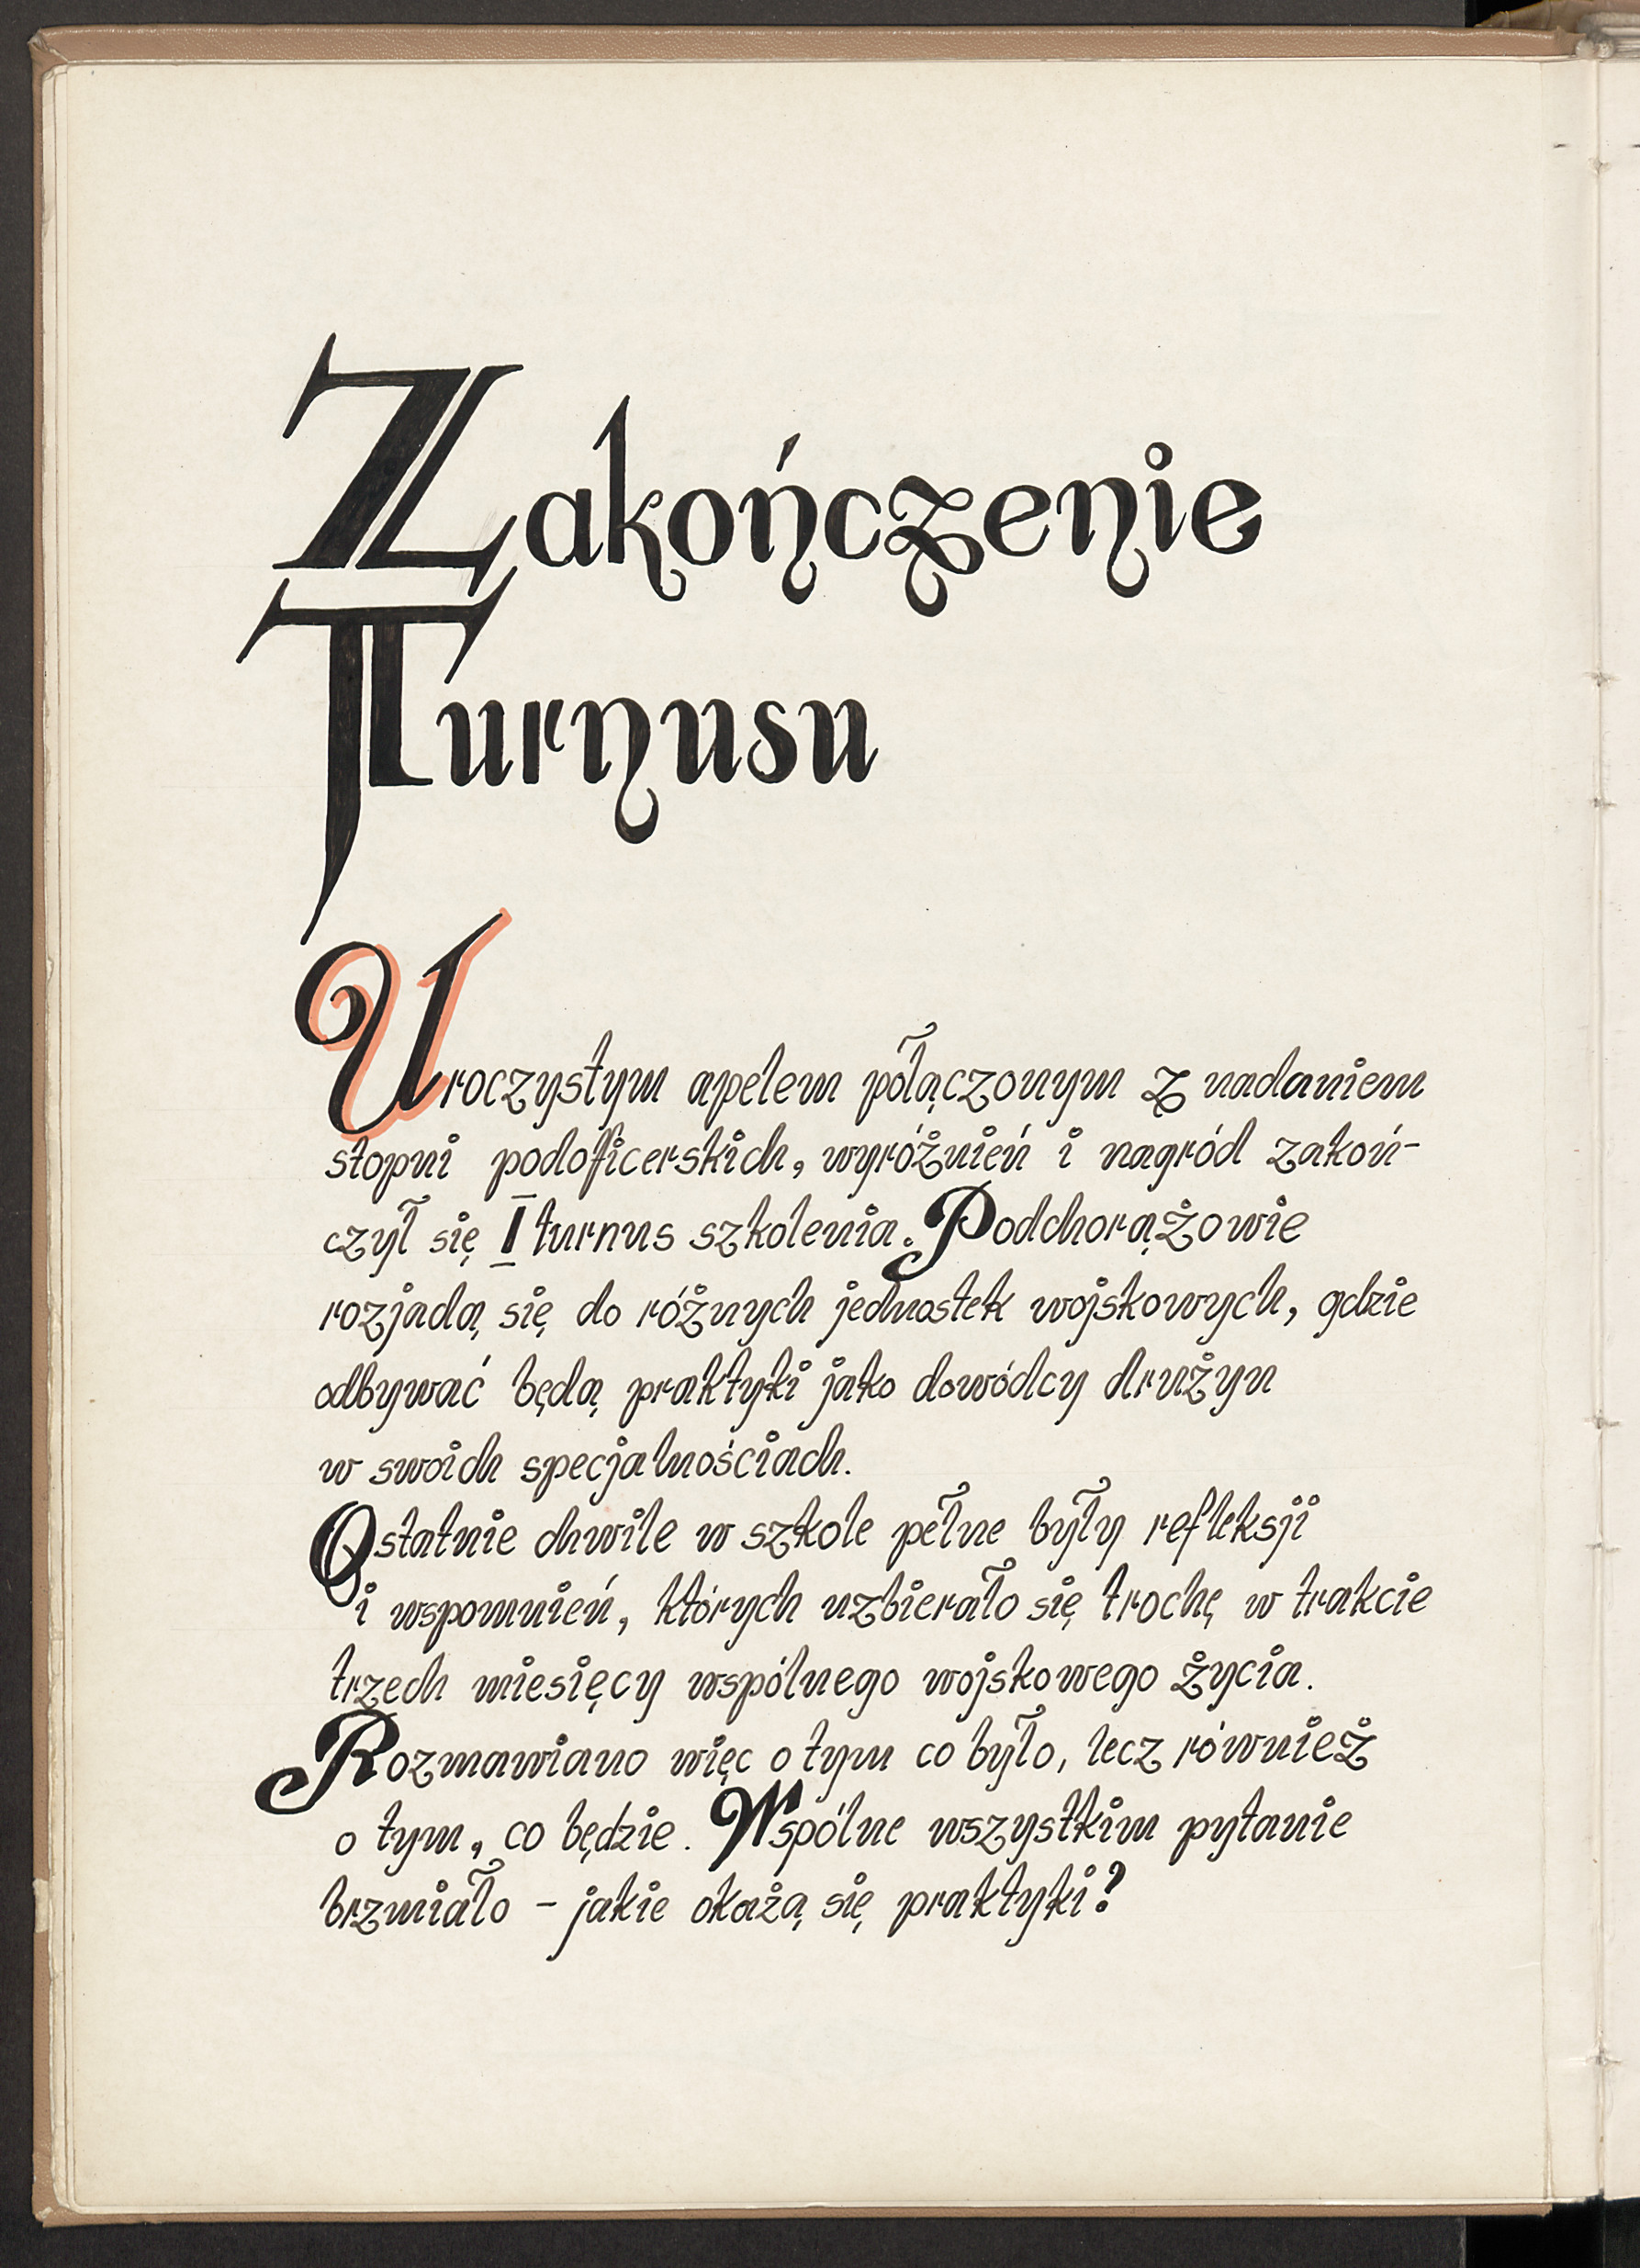 Zakończenie
Turnusu
Uroczystym apelem połączonym z nadaniem
stopni podoficerskich, wyróżnień i nagród zakoń-
czył się I turnus szkolenia. Podchorążowie
rozjadą się do różnych jednostek wojskowych, gdzie
odbywać będą praktyki jako dowódcy drużyn
w swoich specjalnościach.
Ostatnie chwile w szkole pełne były refleksji
i wspomnień, których uzbierało się trochę w trakcie
trzech miesięcy wspólnego wojskowego życia.
Rozmawiano więc o tym co było, lecz również
o tym, co będzie. Wspólne wszystkim pytanie
brzmiało - jakie okażą się praktyki?